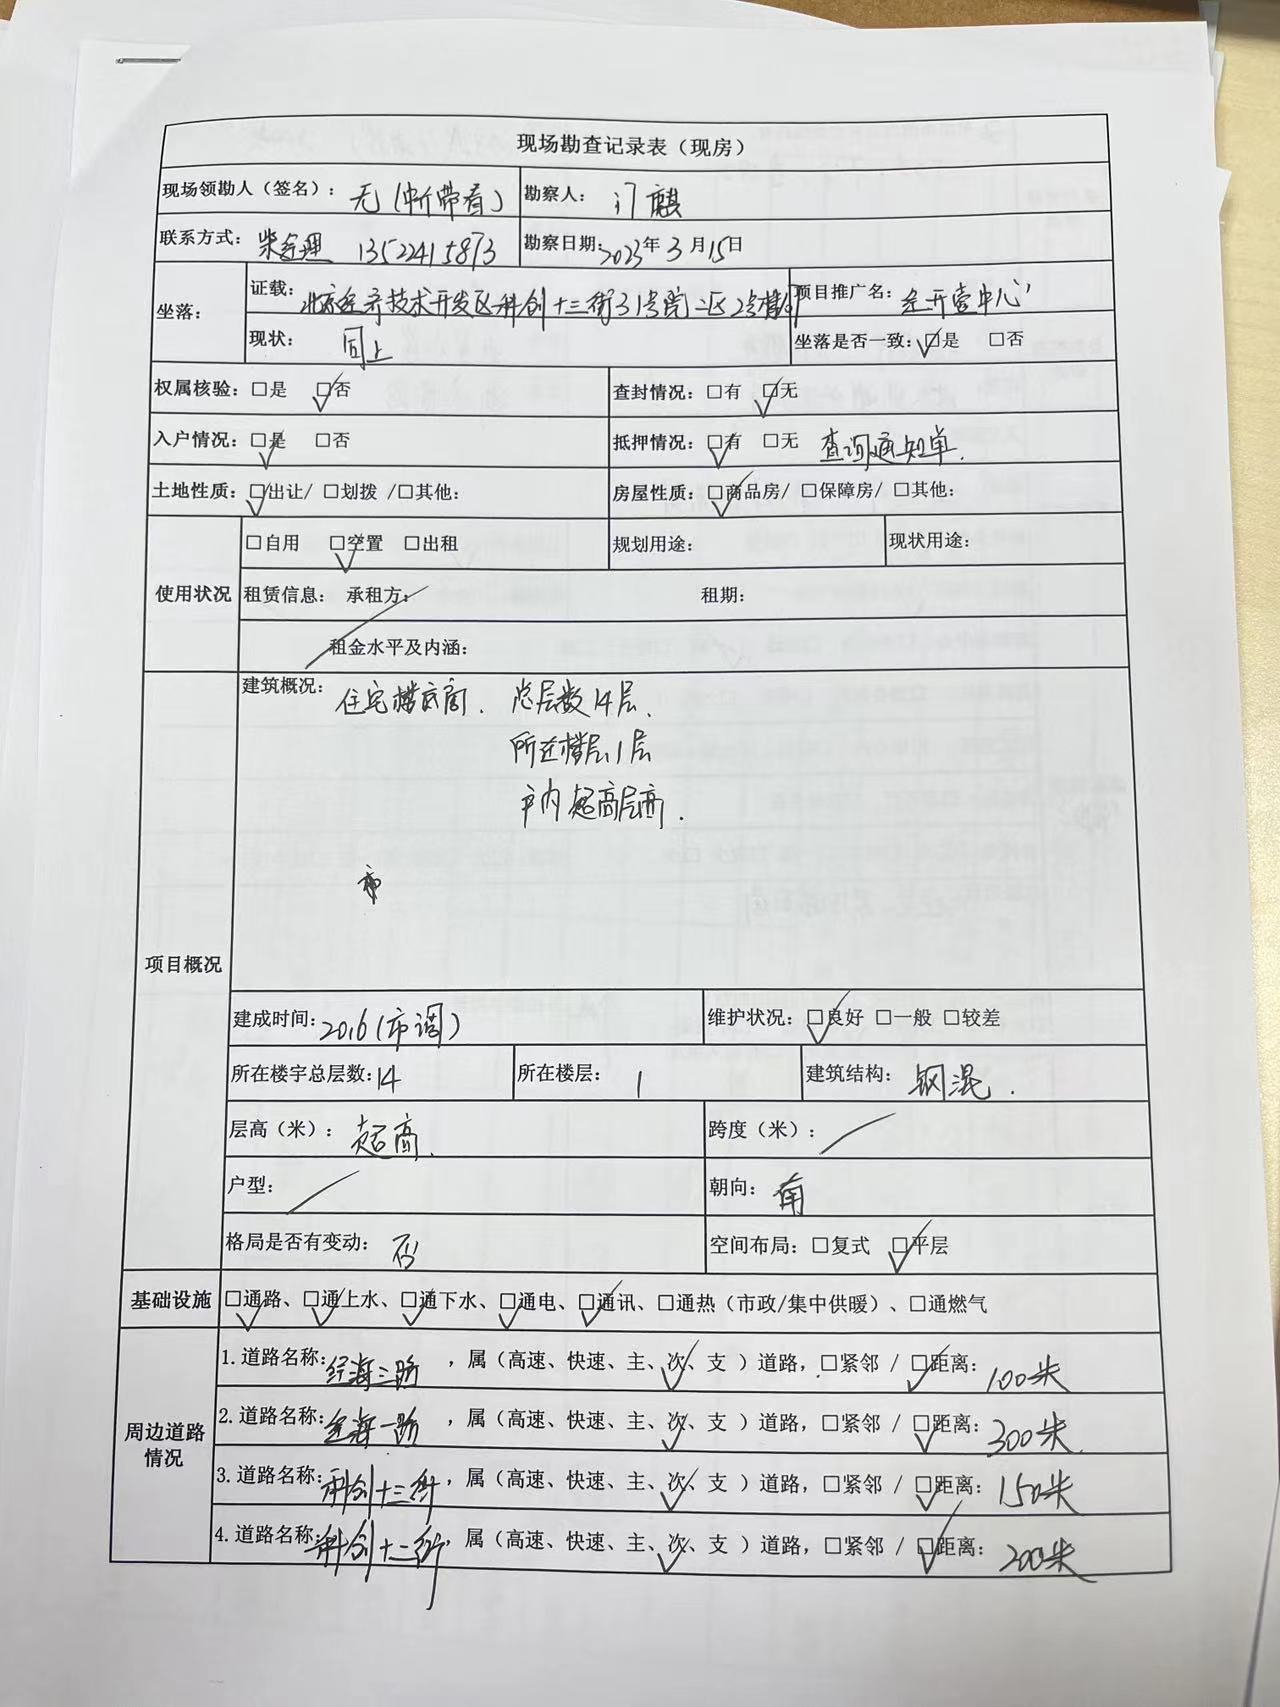 现场勘查记录表（现房）
现场领勘人（签名）： 无（中介带看） 勘察人： 门麒
联系方式： 柴经理 13522415873 勘察日期：2023年3月15日
坐落： 证载： 北京经济技术开发区科创十三街31号院二区2号楼 项目推广名： 经开壹中心
现状： 同上 坐落是否一致：☑是 □否
权属核验：□是 ☑否 查封情况：□有 ☑无
入户情况：☑是 □否 抵押情况：☑有 □无 查询通知单.
土地性质：☑出让/ □划拨 /□其他： 房屋性质：☑商品房/ □保障房/ □其他：
使用状况 □自用 ☑空置 □出租 规划用途： 现状用途：
租赁信息： 承租方： 租期：
租金水平及内涵：
项目概况 建筑概况： 住宅楼底商. 总层数14层、
所在楼层1层
户内超高层高.
建成时间：2016(市调) 维护状况：☑良好 □一般 □较差
所在楼宇总层数：14 所在楼层： 1 建筑结构： 钢混.
层高（米）： 超高. 跨度（米）：
户型： 朝向： 南
格局是否有变动： 否 空间布局：□复式 ☑平层
基础设施 ☑通路、☑通上水、☑通下水、☑通电、☑通讯、□通热（市政/集中供暖）、□通燃气
周边道路情况 1.道路名称：经海三路，属（高速、快速、主、次✓、支 ）道路，□紧邻 / ☑距离：100米
2.道路名称：经海一路，属（高速、快速、主、次✓、支 ）道路，□紧邻 / ☑距离：300米
3.道路名称：科创十三街，属（高速、快速、主、次✓、支 ）道路，□紧邻 / ☑距离：150米
4.道路名称：科创十二街，属（高速、快速、主、次✓、支 ）道路，□紧邻 / ☑距离：200米